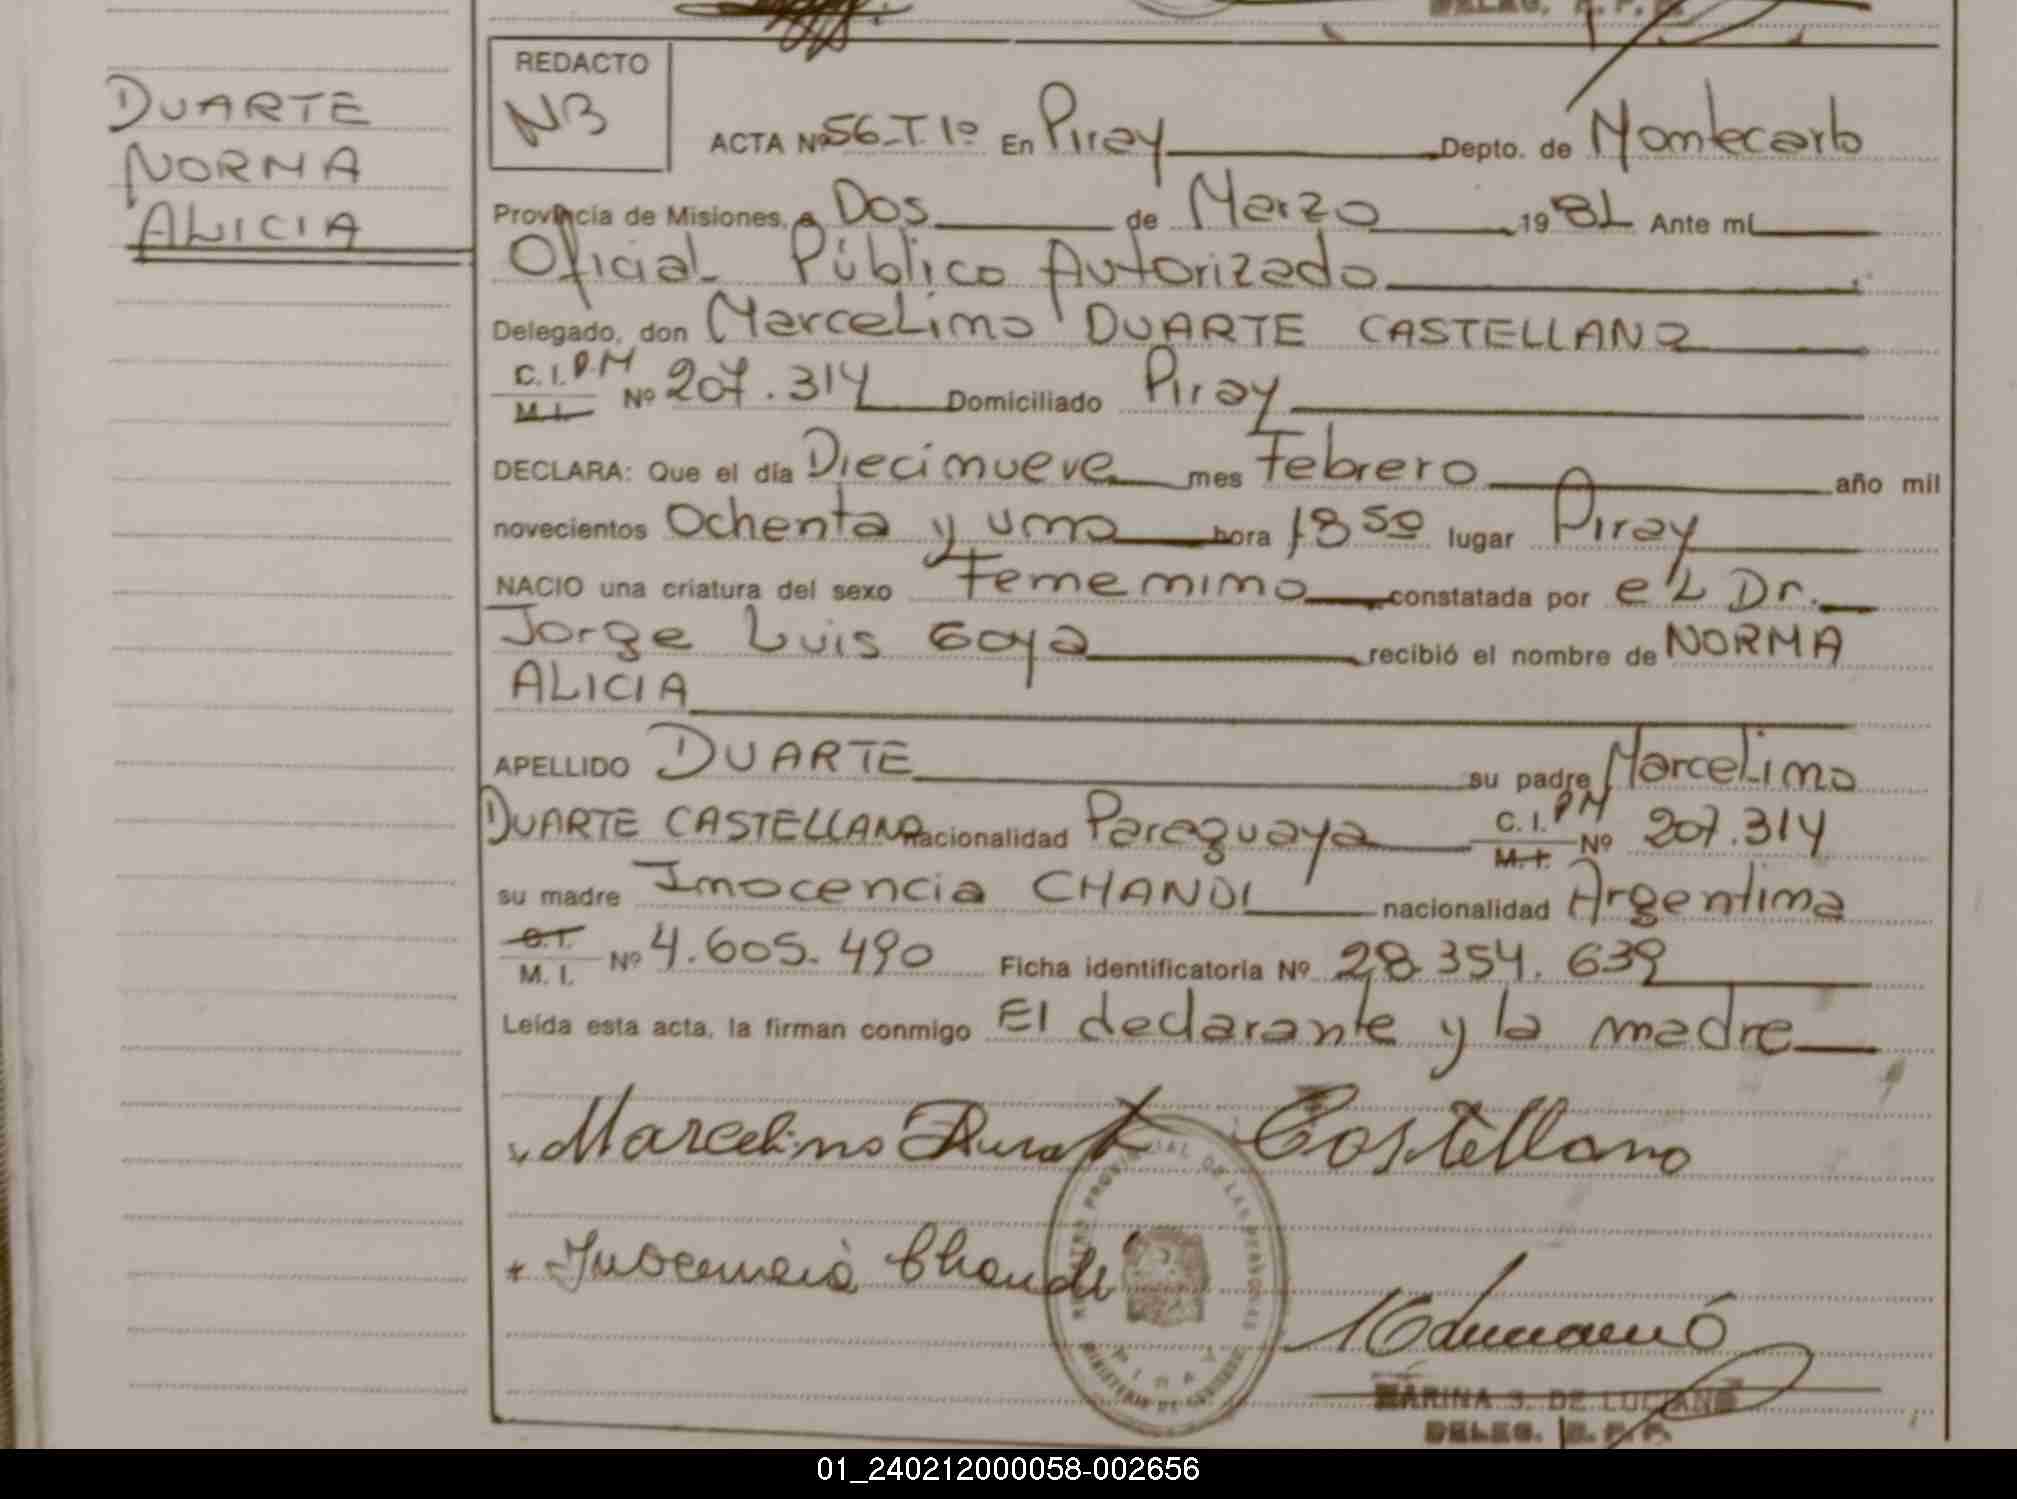 DUARTE
NORMA
ALICIA
REDACTO
NB
ACTA Nº 56-T.1º En Piray Depto. de Montecarlo
Provincia de Misiones, a Dos de Marzo 1981 Ante mí
Oficial Público Autorizado
Delegado, don Marcelino DUARTE CASTELLANO
C.I. P.M
M.I. Nº 207.314 Domiciliado Piray
DECLARA: Que el día Diecinueve mes Febrero año mil
novecientos Ochenta y uno hora 18 50 lugar Piray
NACIO una criatura del sexo Femenino constatada por el Dr.
Jorge Luis Goya recibió el nombre de NORMA
ALICIA
APELLIDO DUARTE su padre Marcelino
DUARTE CASTELLANO nacionalidad Paraguaya C.I. PM M.I. Nº 207.314
su madre Inocencia CHANDI nacionalidad Argentina
C.I. M.I. Nº 4.605.490 Ficha identificatoria Nº 28.354.639
Leída esta acta, la firman conmigo El declarante y la madre
Marcelino Duarte Castellano
Inocencia Chandi
REGISTRO PROVINCIAL DE LAS PERSONAS
PIRAY
MINISTERIO DE GOBIERNO
MARINA S. DE LUCIANO
DELEG. R. P. P.
01_240212000058-002656